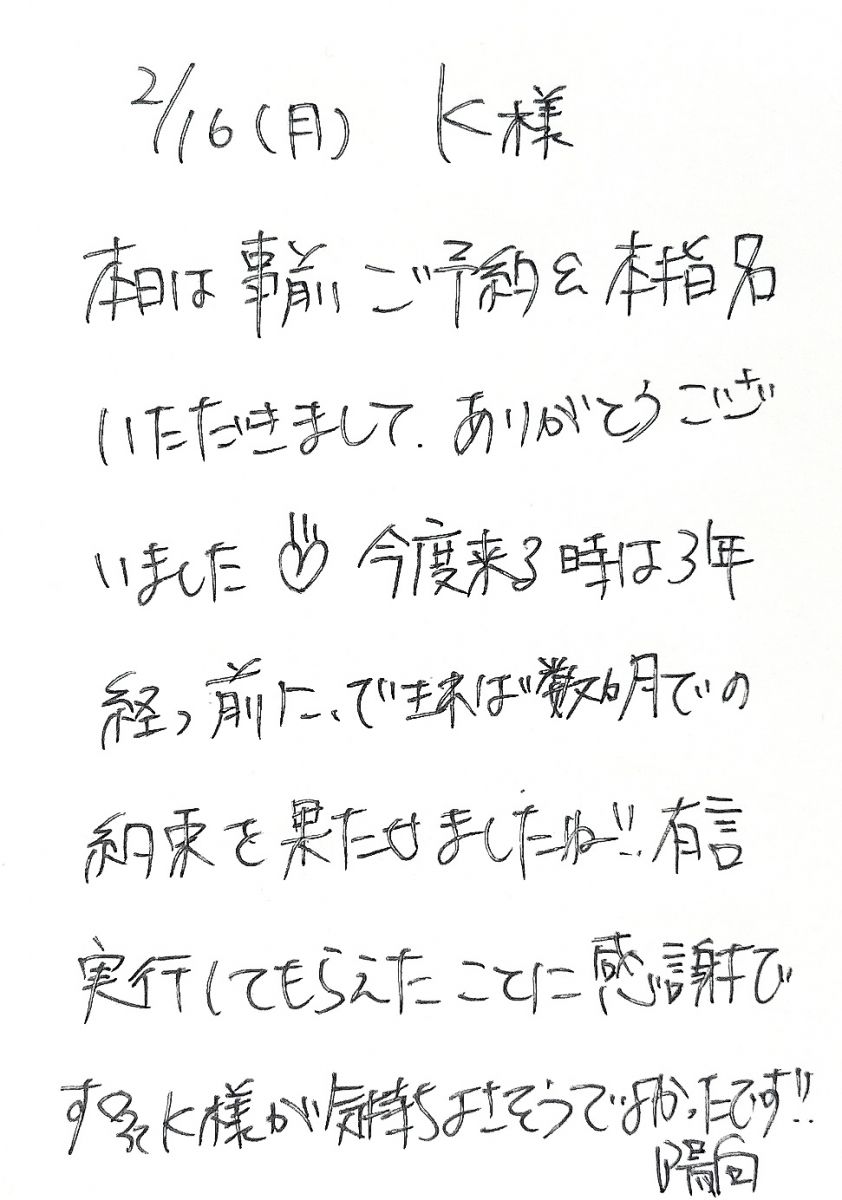 2/16(月) K様
本日は事前ご予約&本指名
いただきまして、ありがとうござ
いました♡ 今度来る時は3年
経つ前に、できれば数ヶ月での
約束を果たせましたね!!有言
実行してもらえたことに感謝で
す K様が気持ちよさそうでよかったです!!
陽向